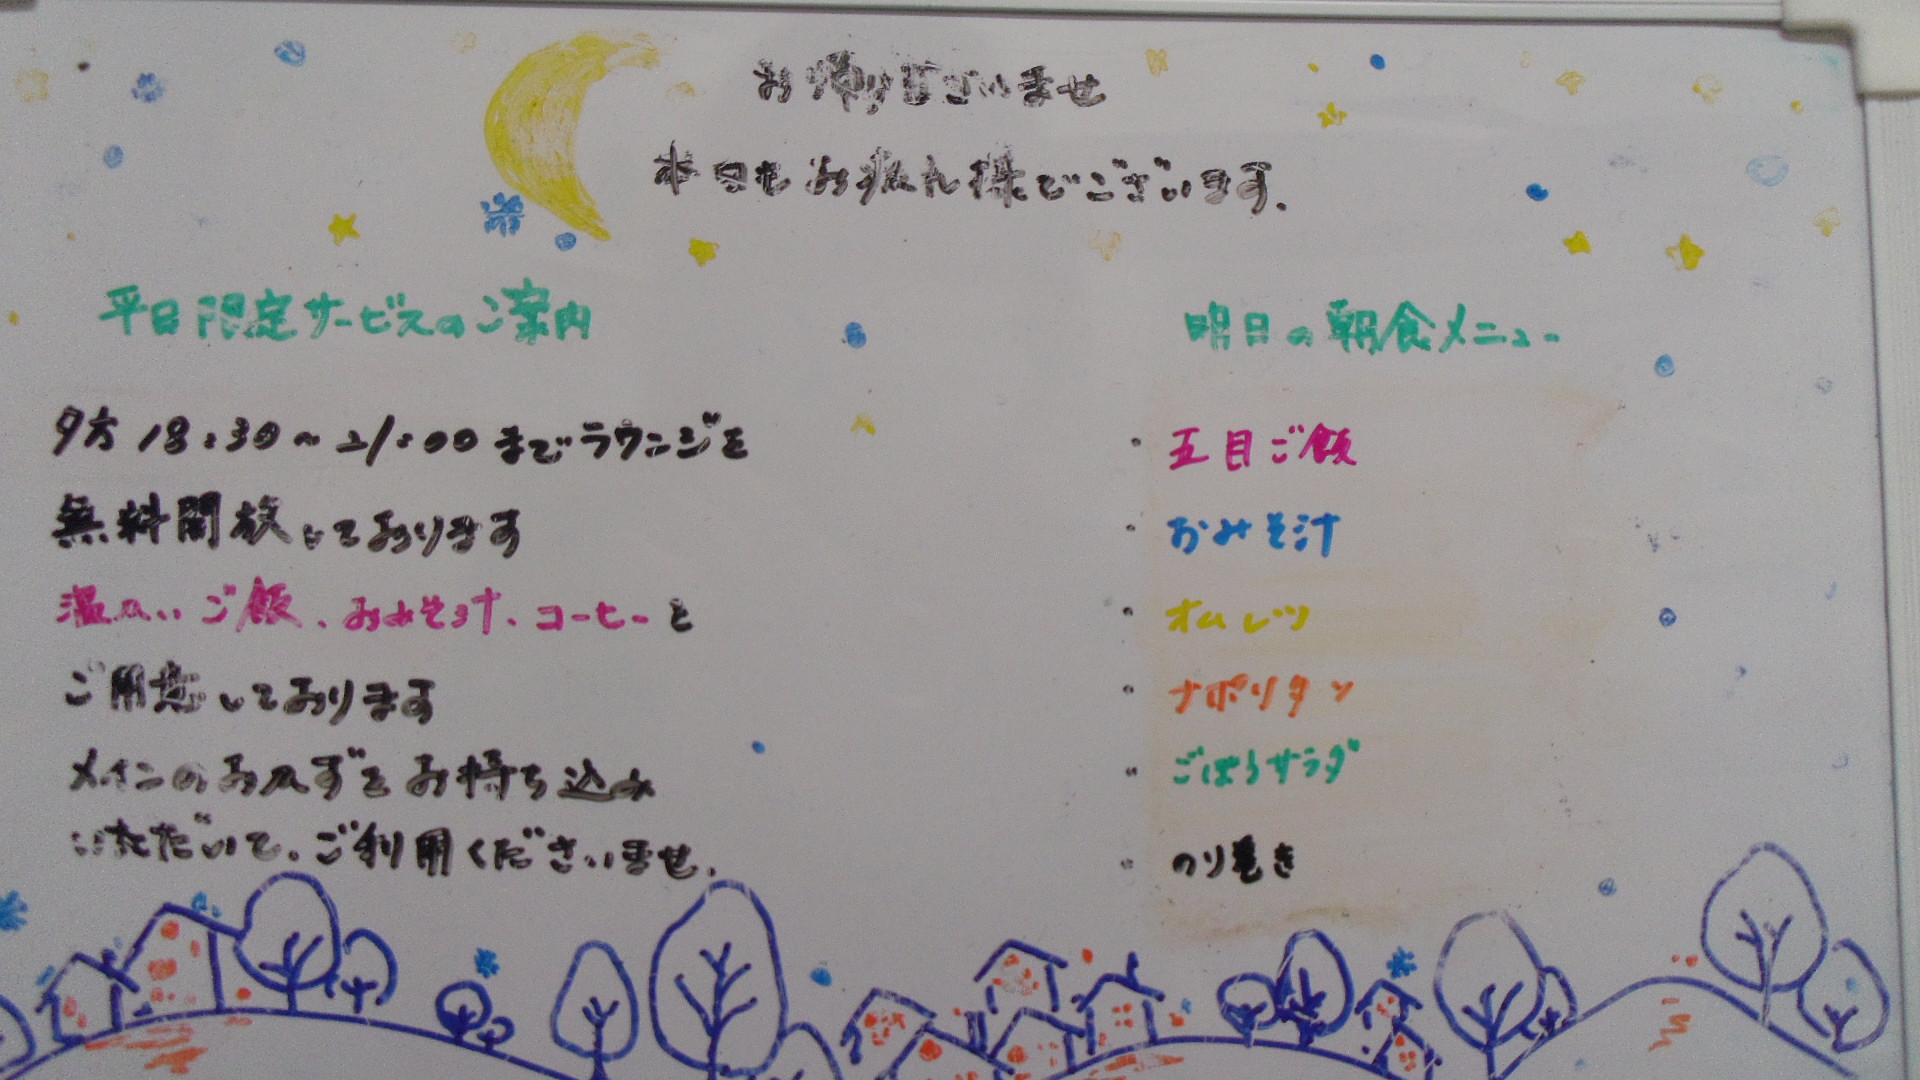 お帰りなさいませ
本日もお疲れ様でございます.
平日限定サービスのご案内
夕方 18:30~21:00 までラウンジを
無料開放しております
温かいご飯、おみそ汁、コーヒーと
ご用意しております
メインのおかずをお持ち込み
いただいて。ご利用くださいませ.
明日の朝食メニュー
・五目ご飯
・おみそ汁
・オムレツ
・ナポリタン
・ごぼうサラダ
・のり巻き